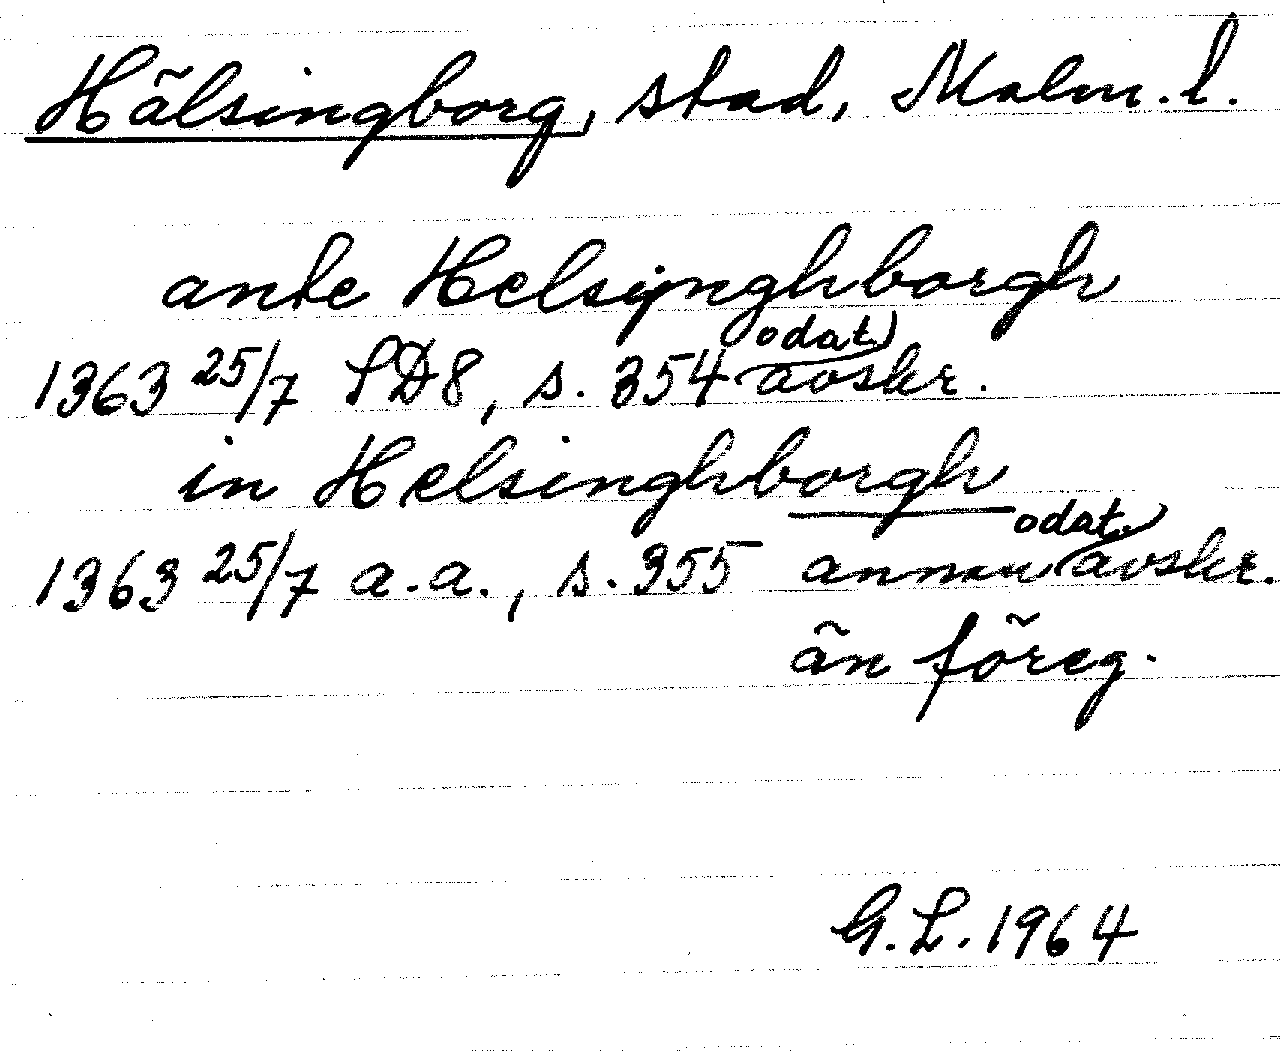 Hälsingborg, stad, Malm. l.
ante Helsijnghborgh
1363 25/7 SD8, s. 354 odat. avskr.
in Helsinghborgh
1363 25/7 a.a., s. 355 annan odat. avskr.
än föreg.
G.L. 1964